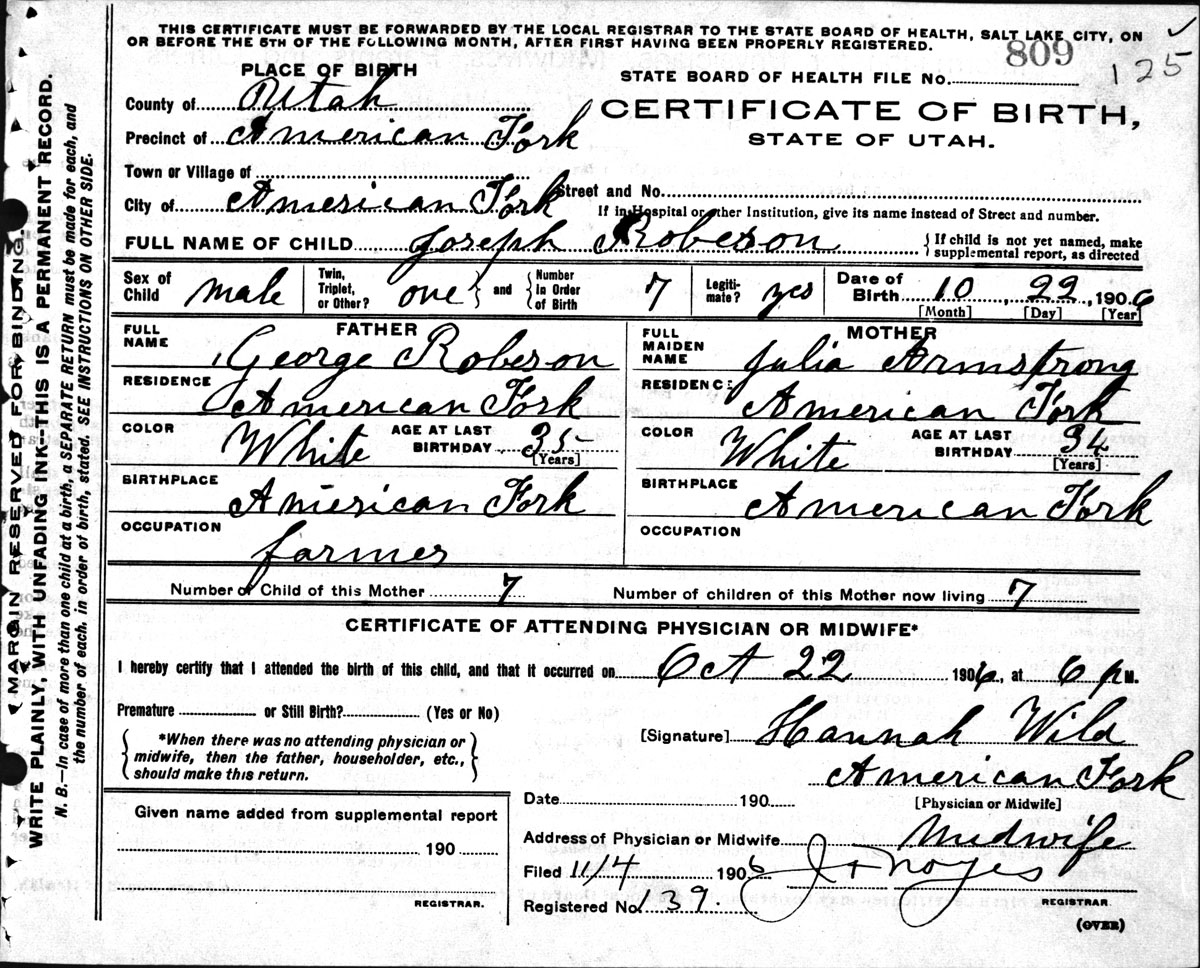 THIS CERTIFICATE MUST BE FORWARDED BY THE LOCAL REGISTRAR TO THE STATE BOARD OF HEALTH, SALT LAKE CITY, ON
OR BEFORE THE 5TH OF THE FOLLOWING MONTH, AFTER FIRST HAVING BEEN PROPERLY REGISTERED.
809
125
PLACE OF BIRTH
STATE BOARD OF HEALTH FILE No.
County of Utah
CERTIFICATE OF BIRTH,
Precinct of American Fork
STATE OF UTAH.
Town or Village of
City of American Fork Street and No.
If in Hospital or other Institution, give its name instead of Street and number.
FULL NAME OF CHILD Joseph Robeson { If child is not yet named, make supplemental report, as directed
Sex of Child male Twin, Triplet, or Other? one } and { Number in Order of Birth 7 Legitimate? yes Date of Birth 10, 22, 1906
[Month] [Day] [Year]
FATHER
FULL NAME George Robeson
RESIDENCE American Fork
COLOR White AGE AT LAST BIRTHDAY 35 [Years]
BIRTHPLACE American Fork
OCCUPATION farmer
MOTHER
FULL MAIDEN NAME Julia Armstrong
RESIDENCE American Fork
COLOR White AGE AT LAST BIRTHDAY 34 [Years]
BIRTHPLACE American Fork
OCCUPATION
Number of Child of this Mother 7 Number of children of this Mother now living 7
CERTIFICATE OF ATTENDING PHYSICIAN OR MIDWIFE*
I hereby certify that I attended the birth of this child, and that it occurred on Oct 22 1906, at 6 P M.
Premature or Still Birth? (Yes or No)
{ *When there was no attending physician or
midwife, then the father, householder, etc.,
should make this return. }
[Signature] Hannah Wild
American Fork
[Physician or Midwife]
Date 190
Given name added from supplemental report
190
REGISTRAR.
Address of Physician or Midwife Midwife
Filed 11/4 1906 Noyes
Registered No. 139.
REGISTRAR.
(OVER)
(MARGIN RESERVED FOR BINDING.)
WRITE PLAINLY, WITH UNFADING INK—THIS IS A PERMANENT RECORD.
N. B.—In case of more than one child at a birth, a SEPARATE RETURN must be made for each, and
the number of each, in order of birth, stated. SEE INSTRUCTIONS ON OTHER SIDE.